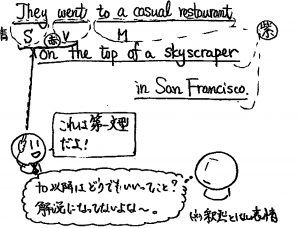 They went to a casual restaurant
S V M
on the top of a skyscraper
in San Francisco.
これは第一文型
だよ!
to以降はどうでもいいってこと?
解説になってないよな〜。